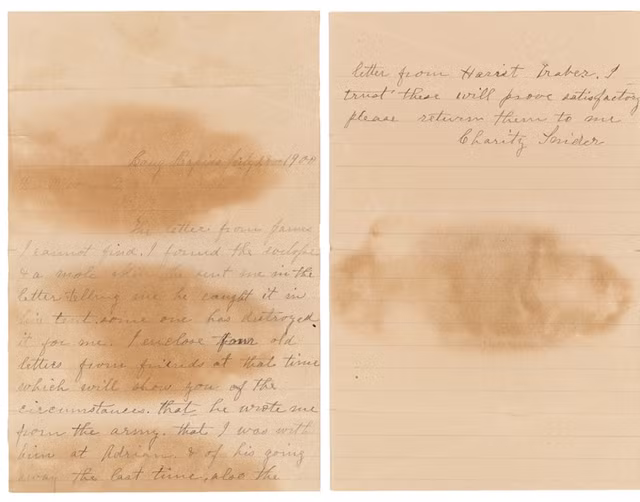 July 28 - 1900
the letter from James
I cannot find. I
& a mole he sent me in the
letter telling me he caught it in
his tent. some one has destroyed
it for me. I enclose four old
letters from friends at that time
which will show you of the
circumstances. that he wrote me
from the army. that I was with
him at Adrian. & of his going
away the last time, also the
letter from
I
trust these will prove satisfactory
please return them to me
Charity Snider